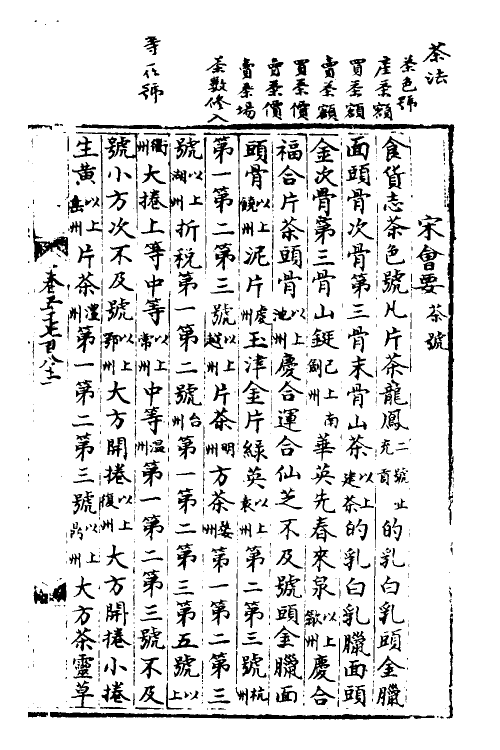 茶法
茶色號
產茶額
買茶額
賣茶額
買茶價
賣茶價
賣茶場
茶數修入
等作號
宋會要 茶號
食貨志茶色號凡片茶龍鳳二號止充貢的乳白乳頭金臘
面頭骨次骨第三骨末骨山茶以上建茶的乳白乳臘面頭
金次骨第三骨山鋌已上南劍州華英先春來泉以上歙州慶合
福合片茶頭骨以上池州慶合運合仙芝不及號頭金臘面
頭骨以上饒州泥片虔州玉津金片綠英以上袁州第二第三號杭州
第一第二第三號以上越州片茶明州方茶婺州第一第二第三
號以上湖州折稅第一第二號台州第一第二第三第五號以上
衢州大捲上等中等以上常州中等溫州第一第二第三號不及
號小方次不及號以上鄂州大方開捲以上復州大方開捲小捲
生黄以上岳州片茶澧州第一第二第三號以上鼎州大方茶靈草
卷五千七百八十二